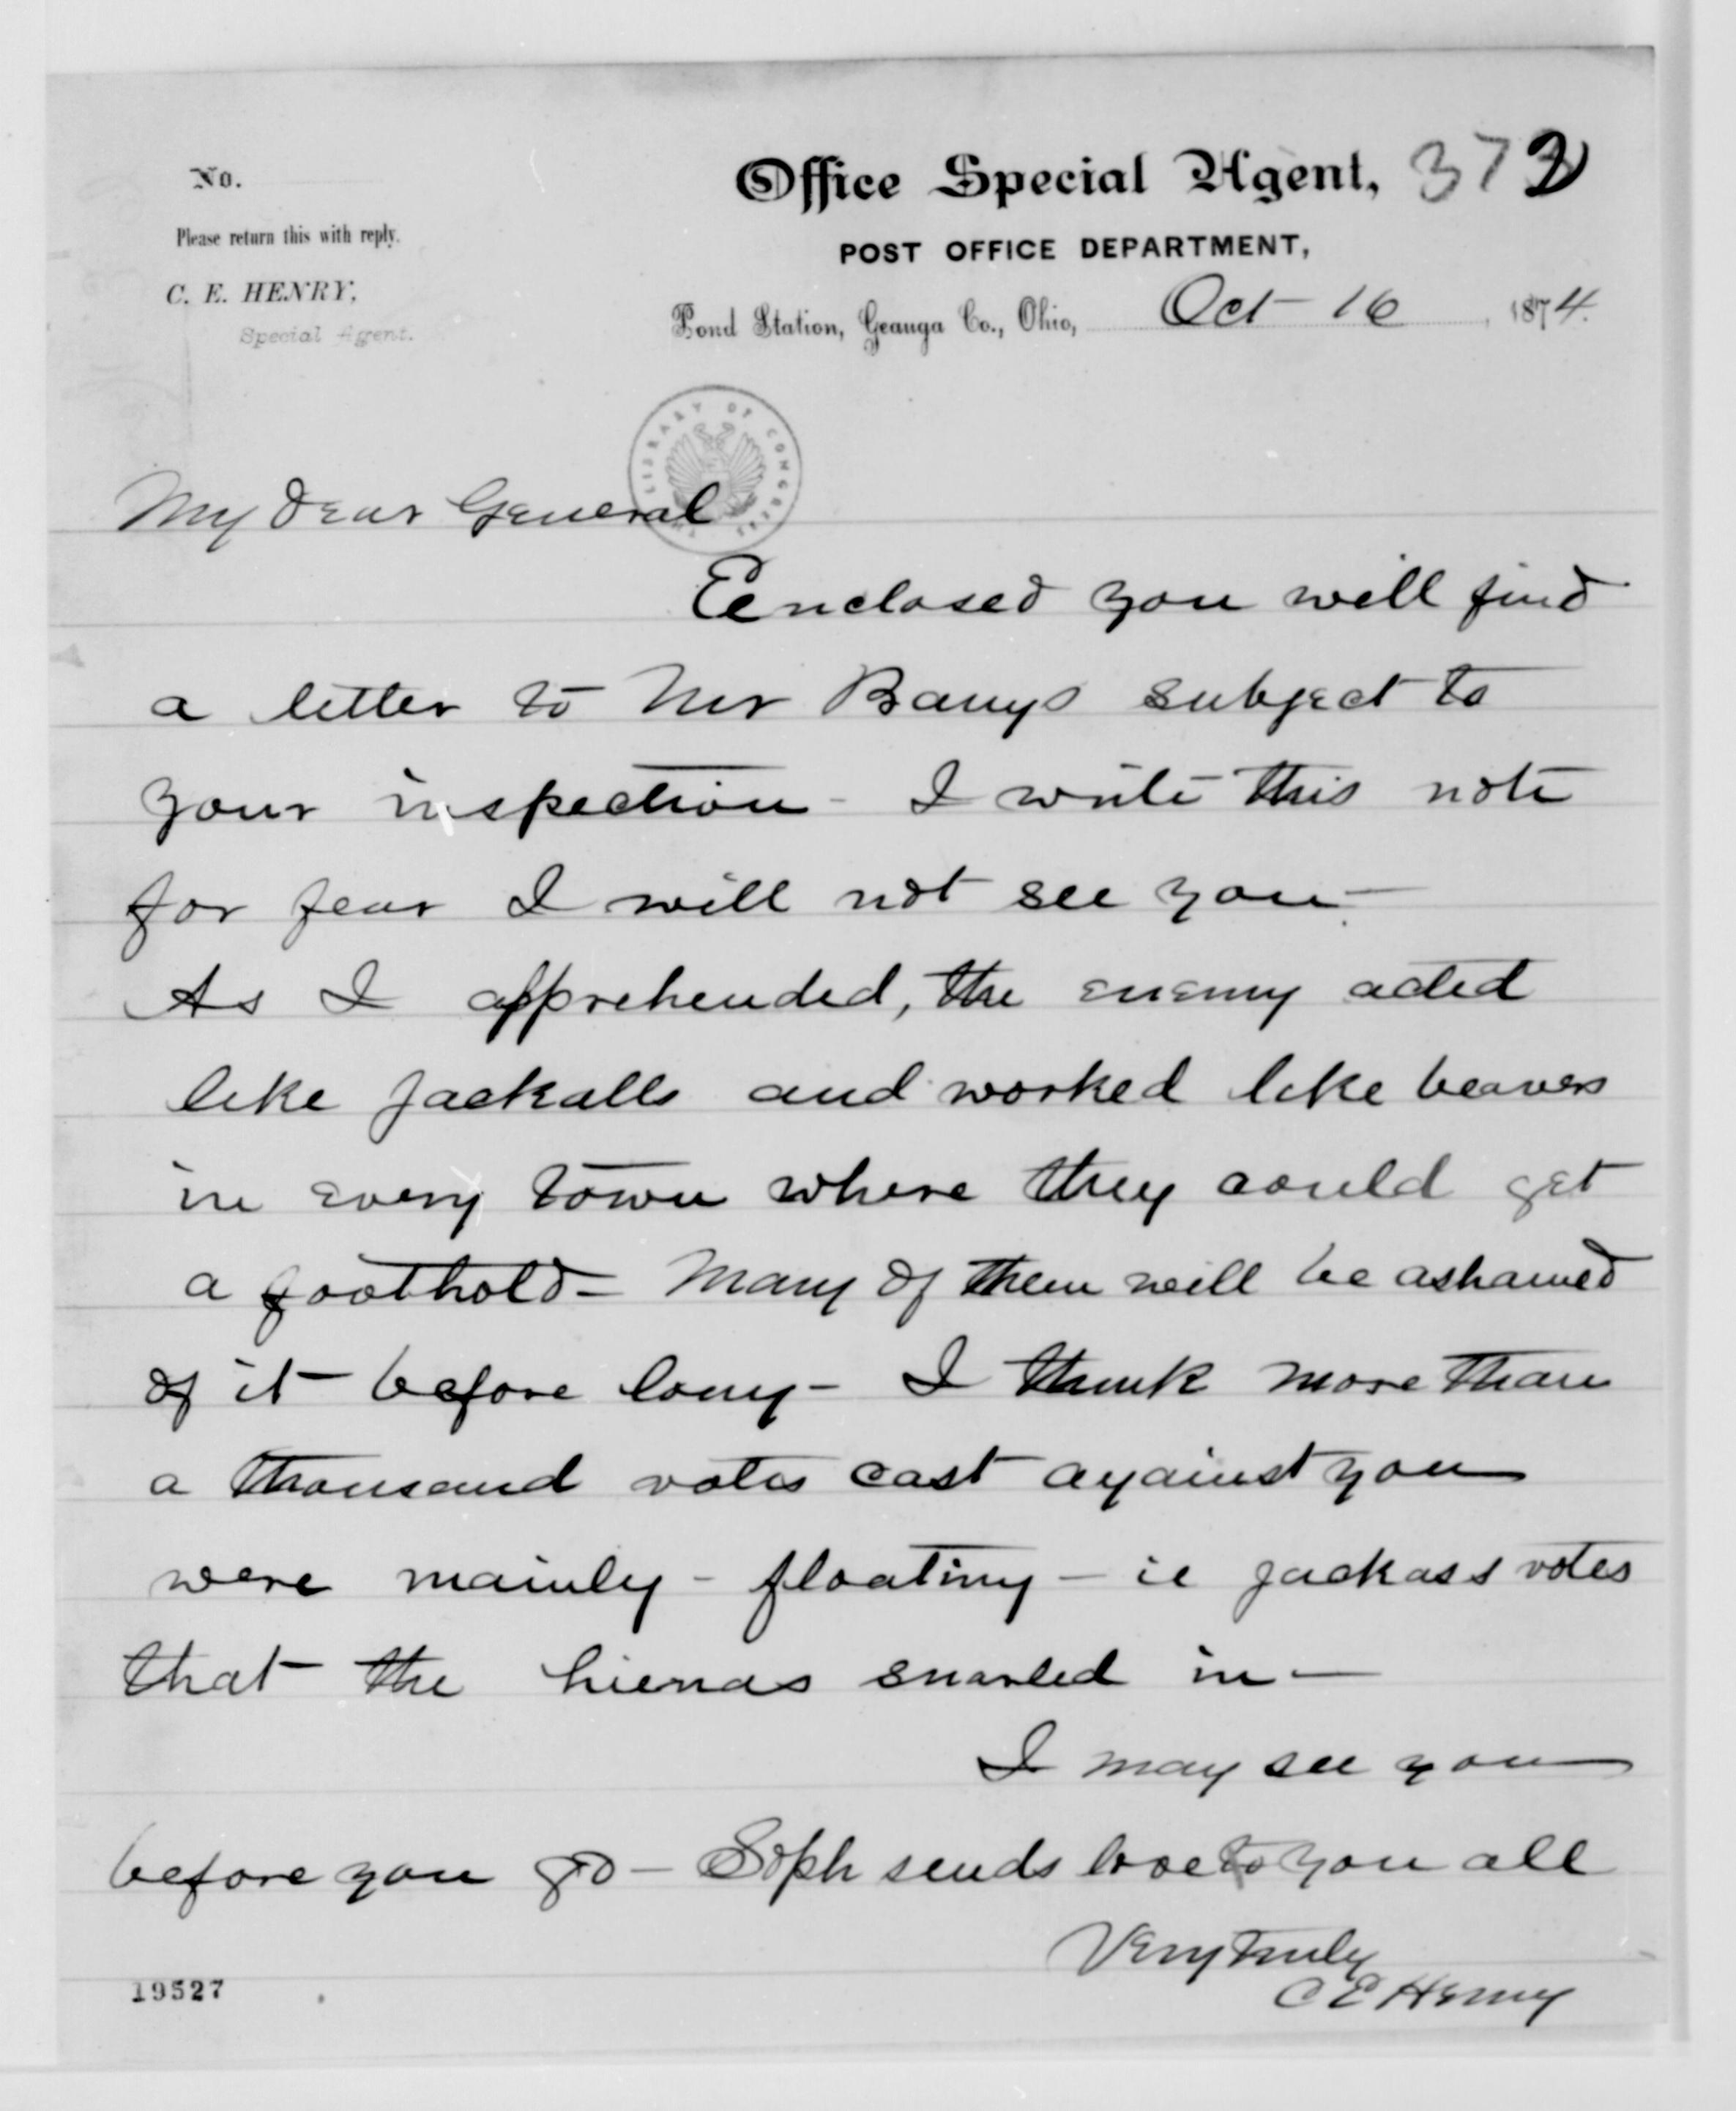 No.
Please return this with reply.
C. E. HENRY,
Special Agent.
Office Special Agent, 372
POST OFFICE DEPARTMENT,
Pond Station, Geauga Co., Ohio, Oct 16 1874.
THE LIBRARY OF CONGRESS
My Dear General
Enclosed you will find
a letter to Mr Bangs subject to
your inspection - I write this note
for fear I will not see you -
As I apprehended, the enemy acted
like jackalls and worked like beavers
in every town where they could get
a foothold - Many of them will be ashamed
of it before long - I think more than
a thousand votes cast against you
were mainly - floating - ie jackass votes
that the hienas snarled in -
I may see you
before you go - Soph sends love to you all
Very truly
C E Henry
19527